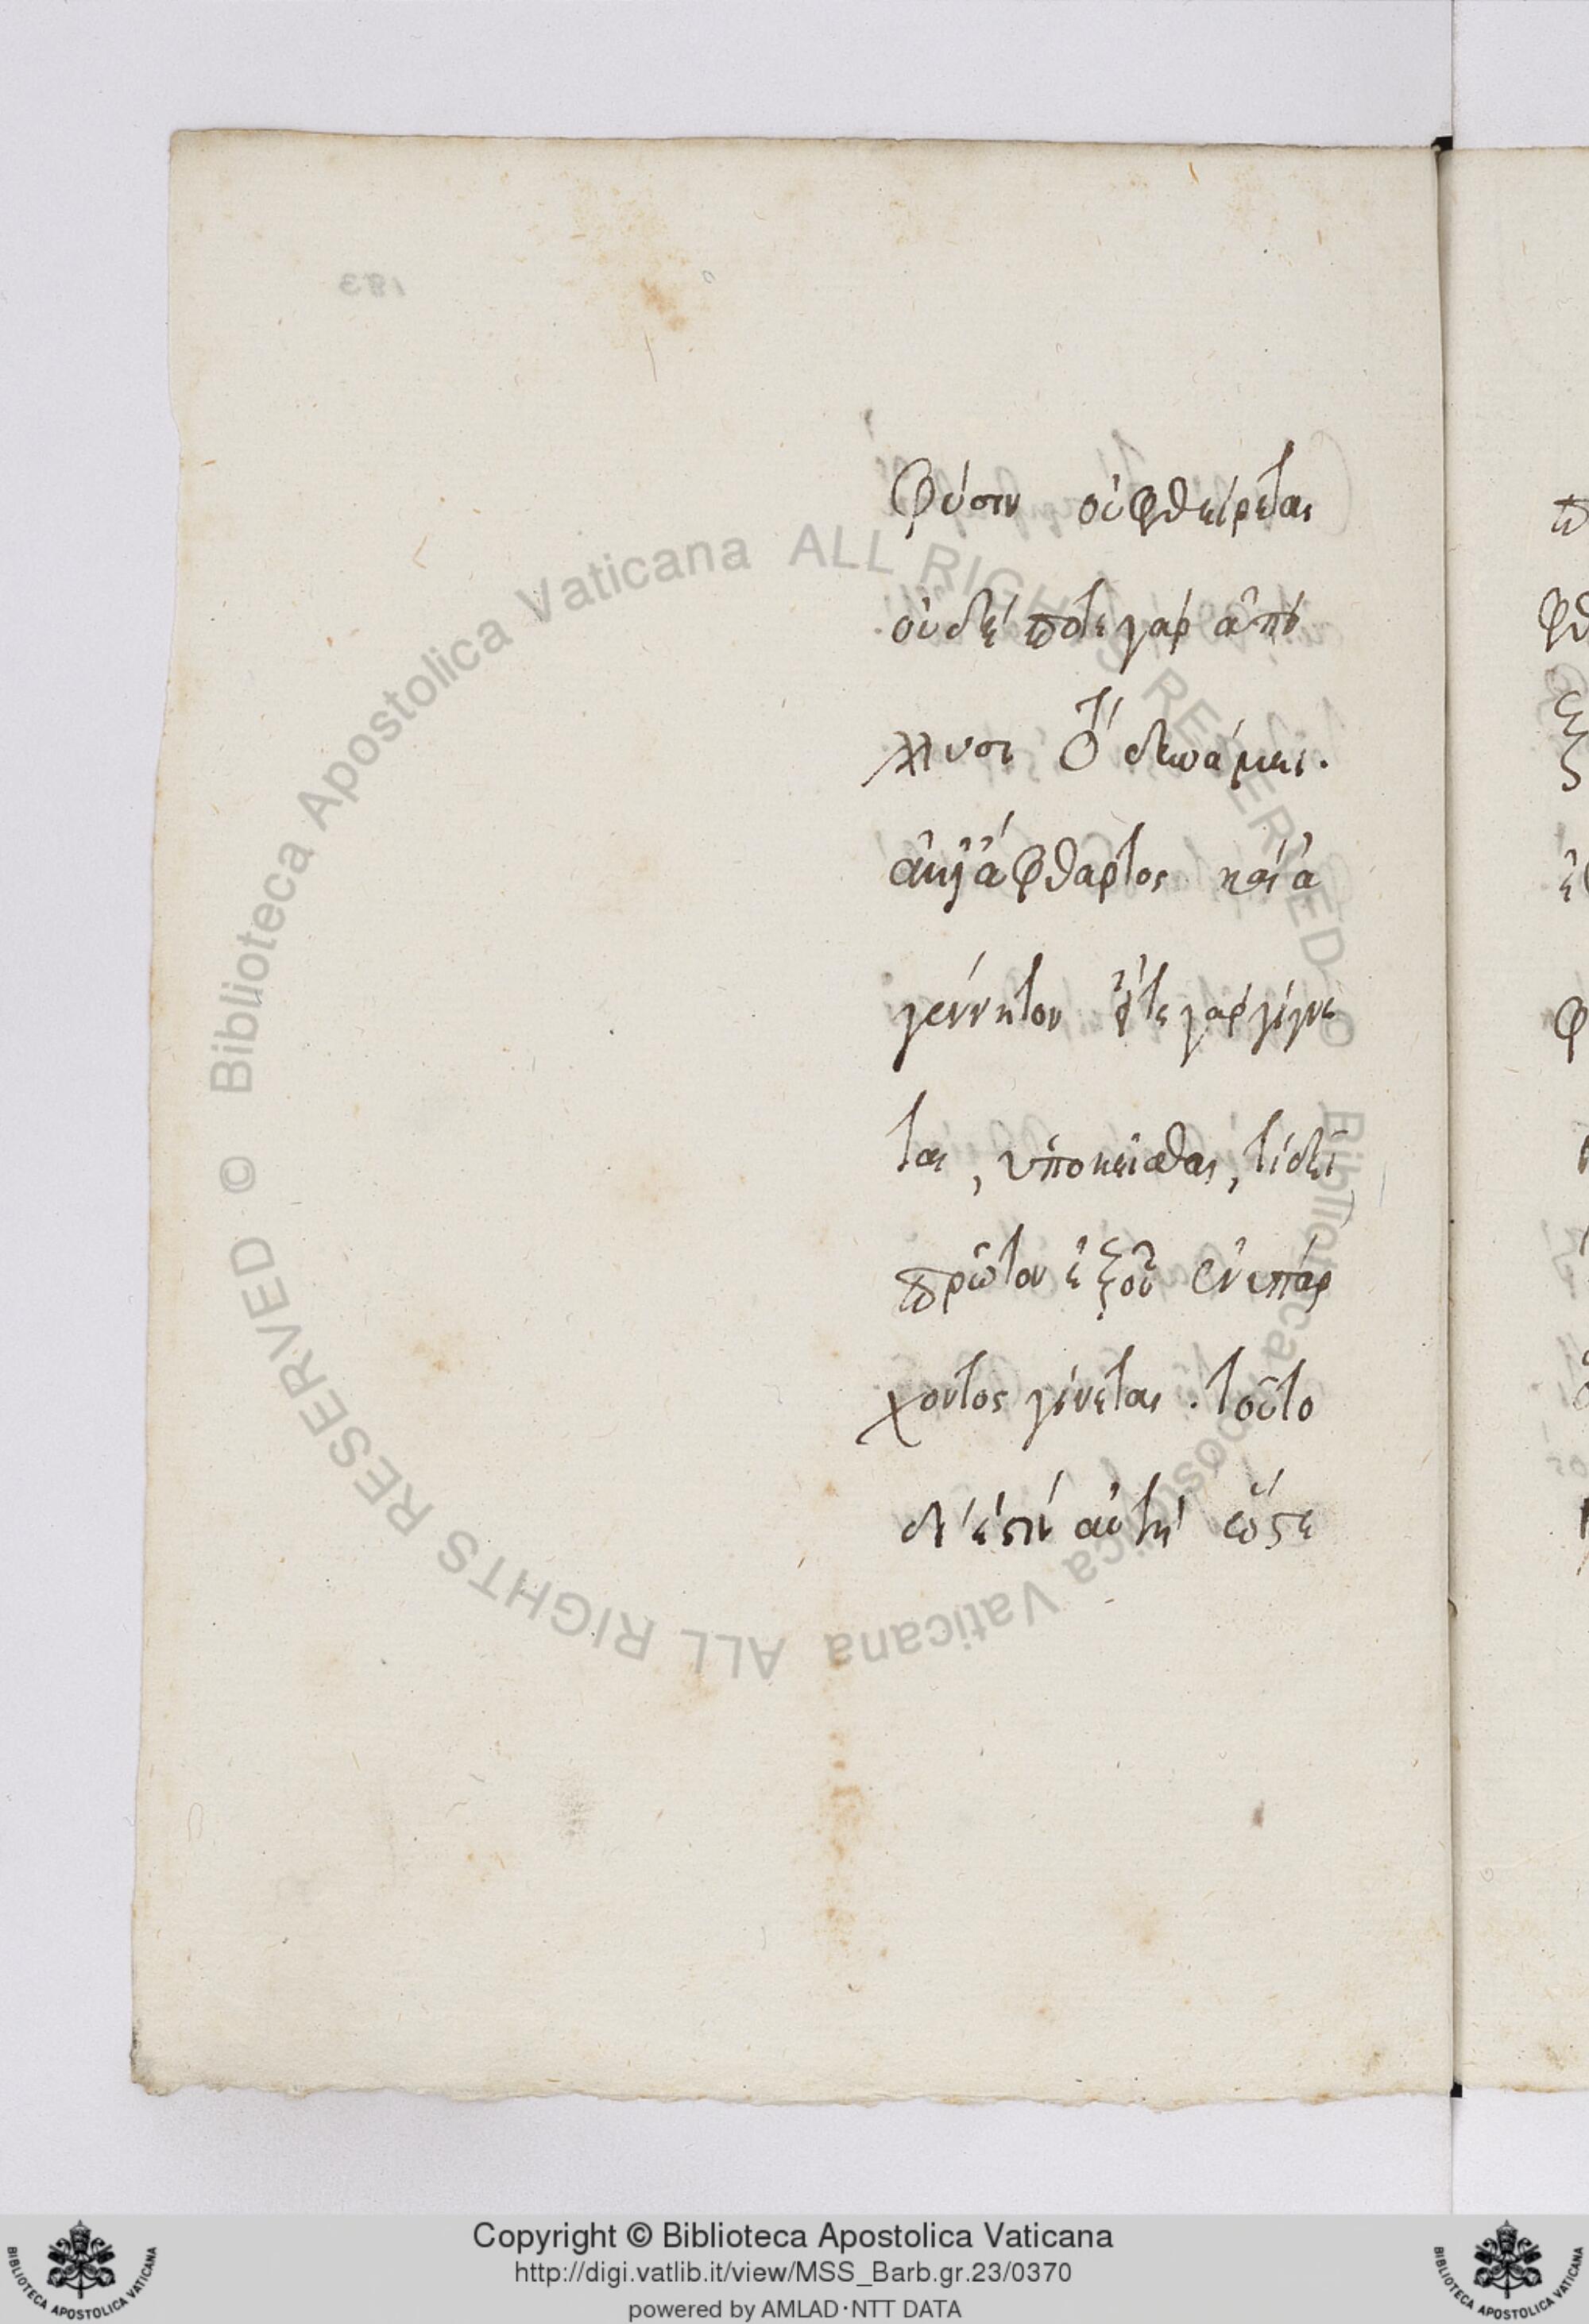 φύσιν οὐ φθείρεται
οὐδέ ποτε γαρ ἀπο
λλυσι
δυνάμει.
ἀνάγ ἄφθαρτος καὶ ἀ
γέννητον εἴτε γαρ γίγνε
ται, ὑποκεῖσθαι, τί δεῖ
πρῶτον ἐξ οὗ ἐνυπάρ
χοντος γίνεται. τοῦτο
δ' ἐστίν αὐτὴ ὥστε
183
Biblioteca Apostolica Vaticana ALL RIGHTS RESERVED ©
Biblioteca Apostolica Vaticana ALL RIGHTS RESERVED ©
Copyright © Biblioteca Apostolica Vaticana
http://digi.vatlib.it/view/MSS_Barb.gr.23/0370
powered by AMLAD·NTT DATA
BIBLIOTECA APOSTOLICA VATICANA
BIBLIOTECA APOSTOLICA VATICANA